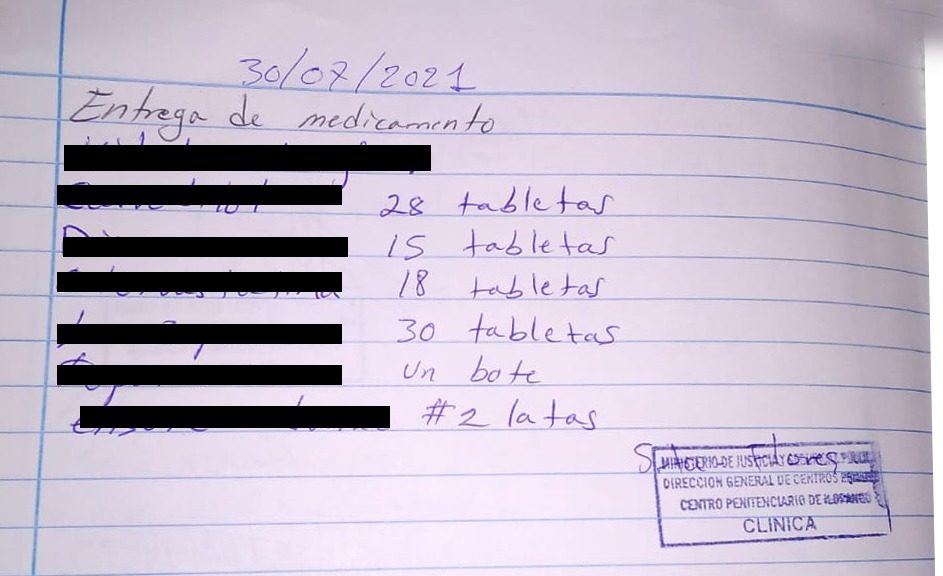 30/07/2021
Entrega de medicamento
28 tabletas
15 tabletas
18 tabletas
30 tabletas
un bote
#2 latas
MINISTERIO DE JUSTICIA Y
DIRECCION GENERAL DE CENTROS
CENTRO PENITENCIARIO DE ILOPANGO
CLINICA